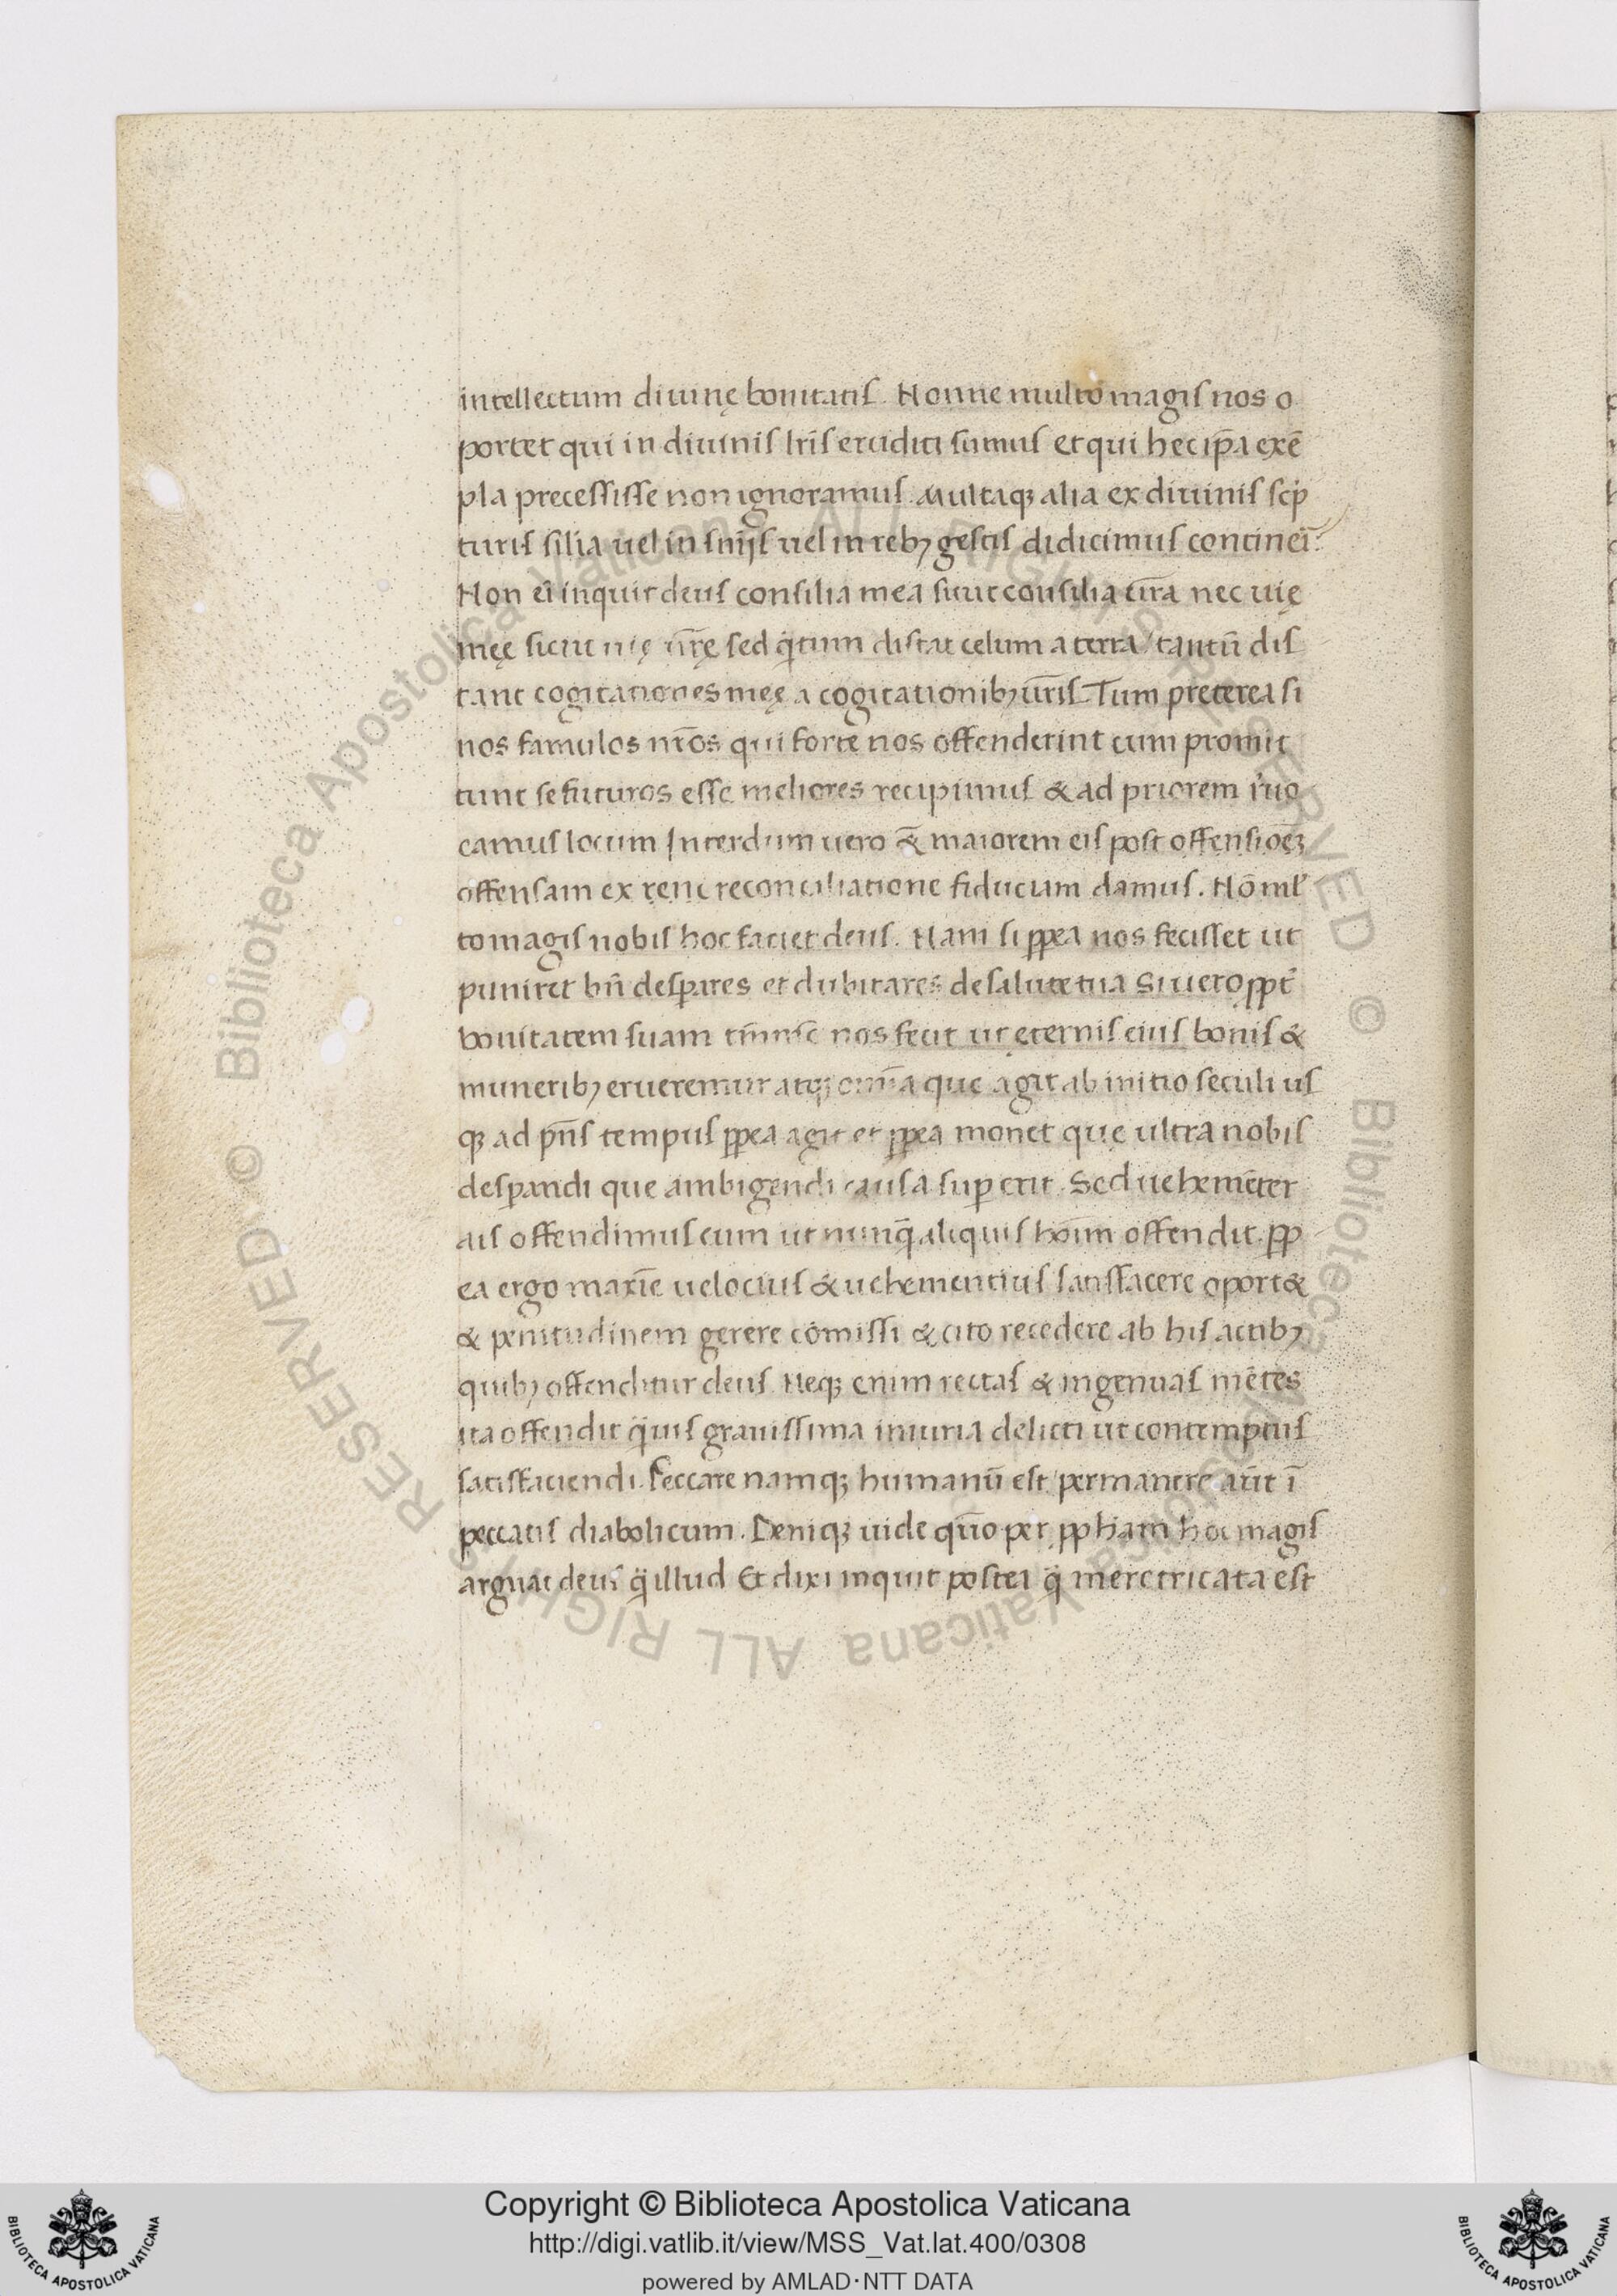 intellectum diuinę bonitatis. Nonne multo magis nos o
portet qui in diuinis lr̄is eruditi sumus et qui hec ip̄a exē
pla precessisse non ignoramus. Multaqꝫ alia ex diuinis scp̄
turis silia uel in sn̄ijs uel in rebꝫ gestis didicimus contineī.
Non ei̅ inquit deus consilia mea sicut consilia ur̄a nec uię
męę sicut uię ur̄ę sed q̄tum distat celum a terra / tantū dis
tant cogitationes męę a cogitationibꝫ ur̄is. Tum preterea si
nos famulos nr̄os qui forte nos offenderint cum promit
tunt se futuros esse meliores recipimus & ad priorem r̄uo
camus locum Interdum uero &̄ maiorem eis post offensioēꝫ
offensam ex reni reconciliatione fiduciam damus. Nō ml̄
to magis nobis hoc faciet deus. Nam si pp̄ea nos fecisset ut
puniret bn̄ desꝑares et dubitares de salute tua Si uero ppt̄
bonitatem suam nos fecit ut ęternis eius bonis &
muneribꝫ erueremur atqꝫ omīa que agit ab initio seculi us
qꝫ ad pn̄s tempus pp̄ea agit et pp̄ea monet quę ultra nobis
desꝑandi que ambigendi causa suꝑ erit. Sed uehemēter
ais offendimus eum ut nunq̄ aliquis hoīm offendit. pp̄
ea ergo maxīe uelocius & uehementius satisfacere oport&
& penitudinem gerere cōmissi & cito recedere ab his actibꝫ
quibꝫ offenditur deus. Neqꝫ enim rectas & ingenuas mētes
ita offendit q̄uis grauissima iniuria delicti ut contemptus
satisfaciendi. Peccare namqꝫ humanū est / permanere aūt ī
peccatis diabolicum. Deniqꝫ uide quō per pp̄ham hoc magis
arguat deus q̄ illud Et dixi inquit postea q̄ meretricata est
Copyright © Biblioteca Apostolica Vaticana
http://digi.vatlib.it/view/MSS_Vat.lat.400/0308
powered by AMLAD·NTT DATA
BIBLIOTECA APOSTOLICA VATICANA
BIBLIOTECA APOSTOLICA VATICANA
© Biblioteca Apostolica Vaticana ALL RIGHTS RESERVED © Biblioteca Apostolica Vaticana ALL RIGHTS RESERVED